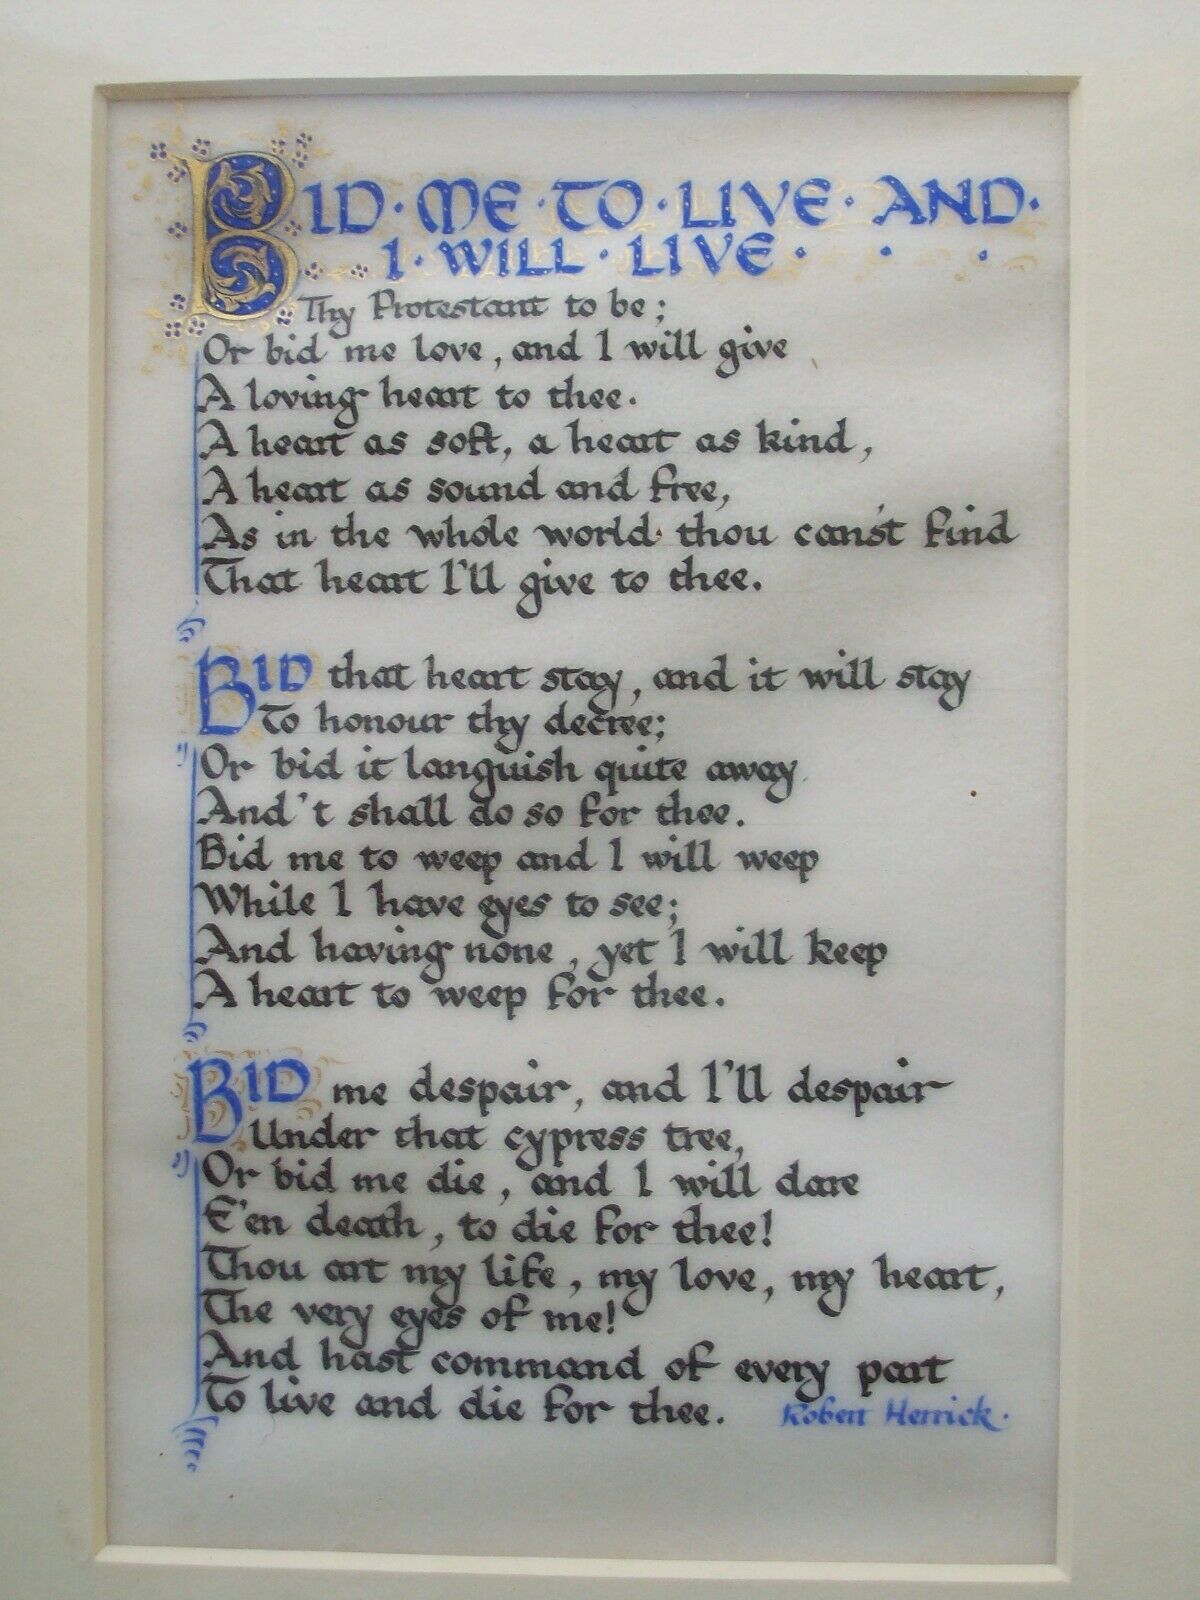 BID · ME · TO · LIVE · AND ·
I · WILL · LIVE ·
Thy Protestant to be;
Or bid me love, and I will give
A loving heart to thee.
A heart as soft, a heart as kind,
A heart as sound and free,
As in the whole world thou cans't find
That heart I'll give to thee.
BID that heart stay, and it will stay
To honour thy decree;
Or bid it languish quite away
And 't shall do so for thee.
Bid me to weep and I will weep
While I have eyes to see;
And having none, yet I will keep
A heart to weep for thee.
BID me despair, and I'll despair
Under that cypress tree,
Or bid me die, and I will dare
E'en death, to die for thee!
Thou art my life, my love, my heart,
The very eyes of me!
And hast command of every part
To live and die for thee.
Robert Herrick.